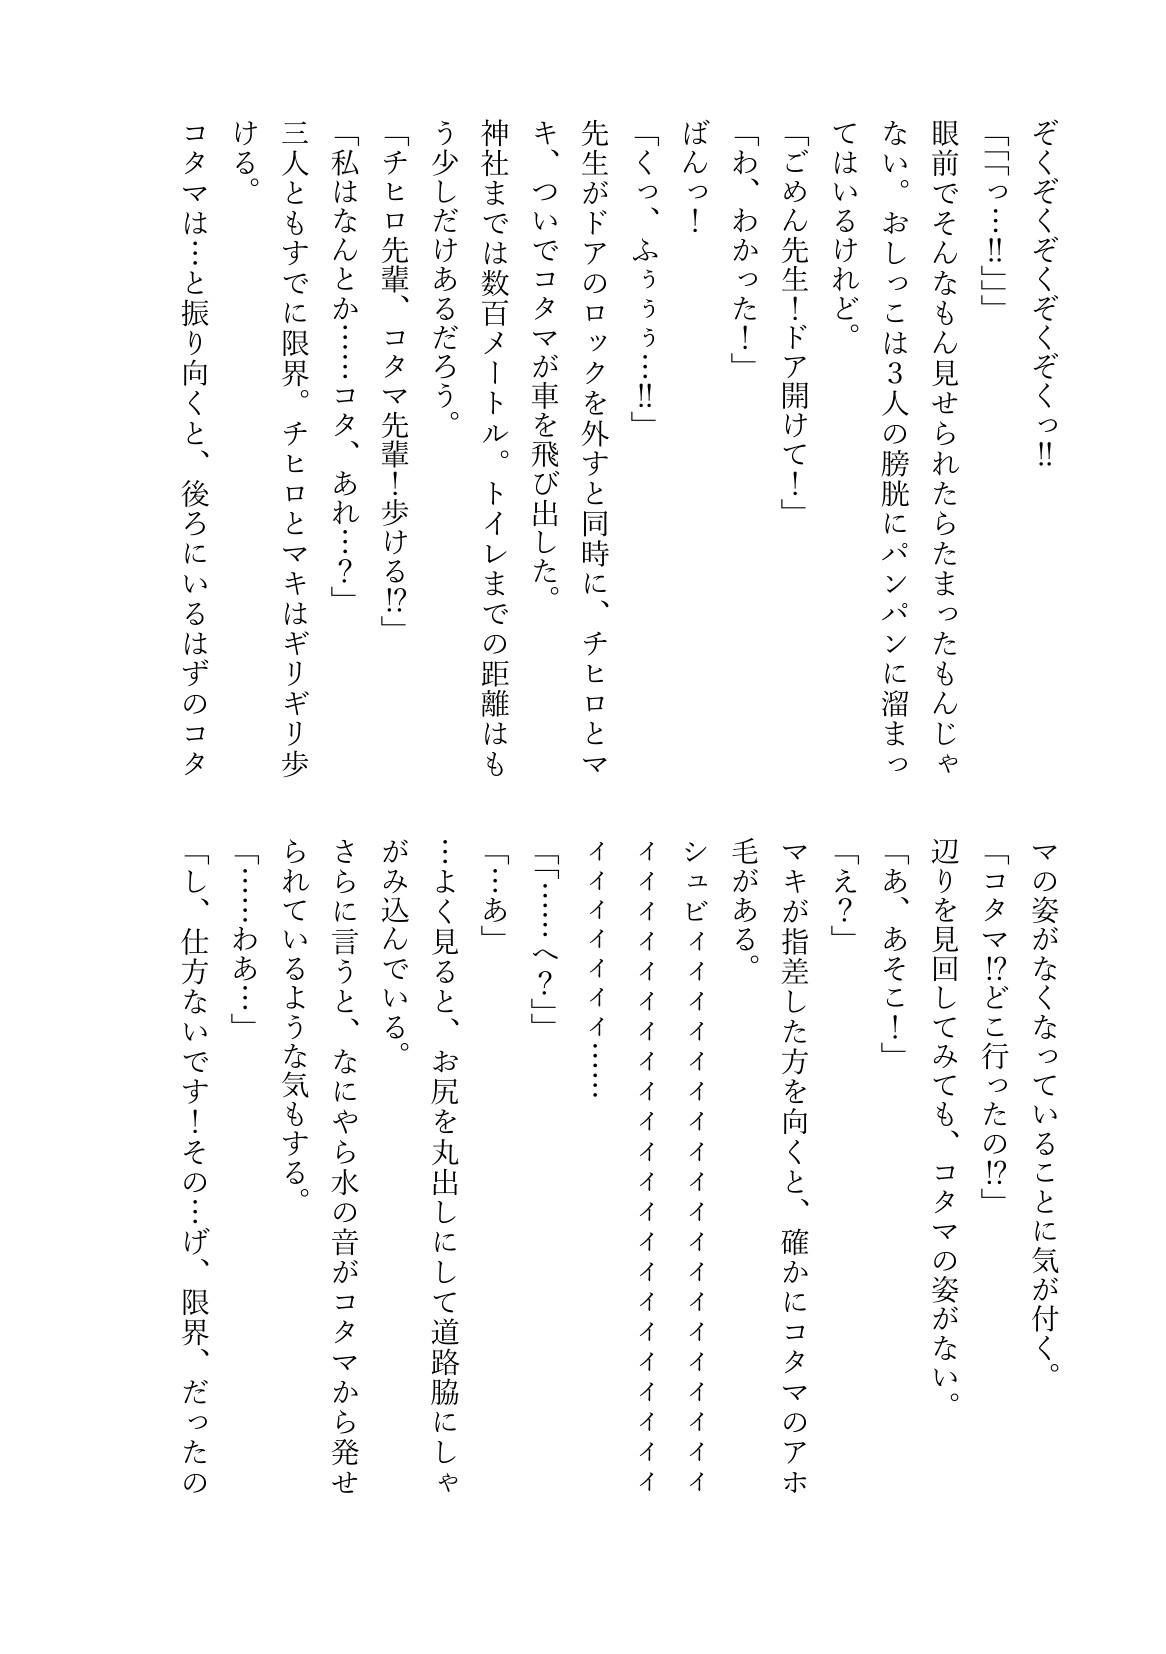 ぞくぞくぞくぞくぞくっ‼
「「「っ…‼」」」
眼前でそんなもん見せられたらたまったもんじゃ
ない。おしっこは３人の膀胱にパンパンに溜まっ
てはいるけれど。
「ごめん先生！ドア開けて！」
「わ、わかった！」
ばんっ！
「くっ、ふぅぅぅ…‼」
先生がドアのロックを外すと同時に、チヒロとマ
キ、ついでコタマが車を飛び出した。
神社までは数百メートル。トイレまでの距離はも
う少しだけあるだろう。
「チヒロ先輩、コタマ先輩！歩ける⁉」
「私はなんとか……コタ、あれ…？」
三人ともすでに限界。チヒロとマキはギリギリ歩
ける。
コタマは…と振り向くと、後ろにいるはずのコタ
マの姿がなくなっていることに気が付く。
「コタマ⁉どこ行ったの⁉」
辺りを見回してみても、コタマの姿がない。
「あ、あそこ！」
「え？」
マキが指差した方を向くと、確かにコタマのアホ
毛がある。
シュビィィィィィィィィィィィィィィィィィィィ
ィィィィィィィィィィィィィィィィィィィィィィ
ィィィィィィィ……
「「……へ？」」
「…あ」
…よく見ると、お尻を丸出しにして道路脇にしゃ
がみ込んでいる。
さらに言うと、なにやら水の音がコタマから発せ
られているような気もする。
「……わあ…」
「し、仕方ないです！その…げ、限界、だったの